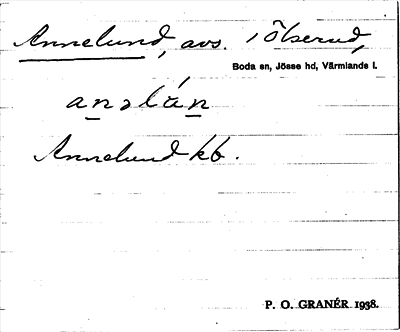 Annelund, avs. i Ölserud,
Boda sn, Jösse hd, Värmlands l.
anəlán
Annelund kb.
P. O. GRANÉR 1938.